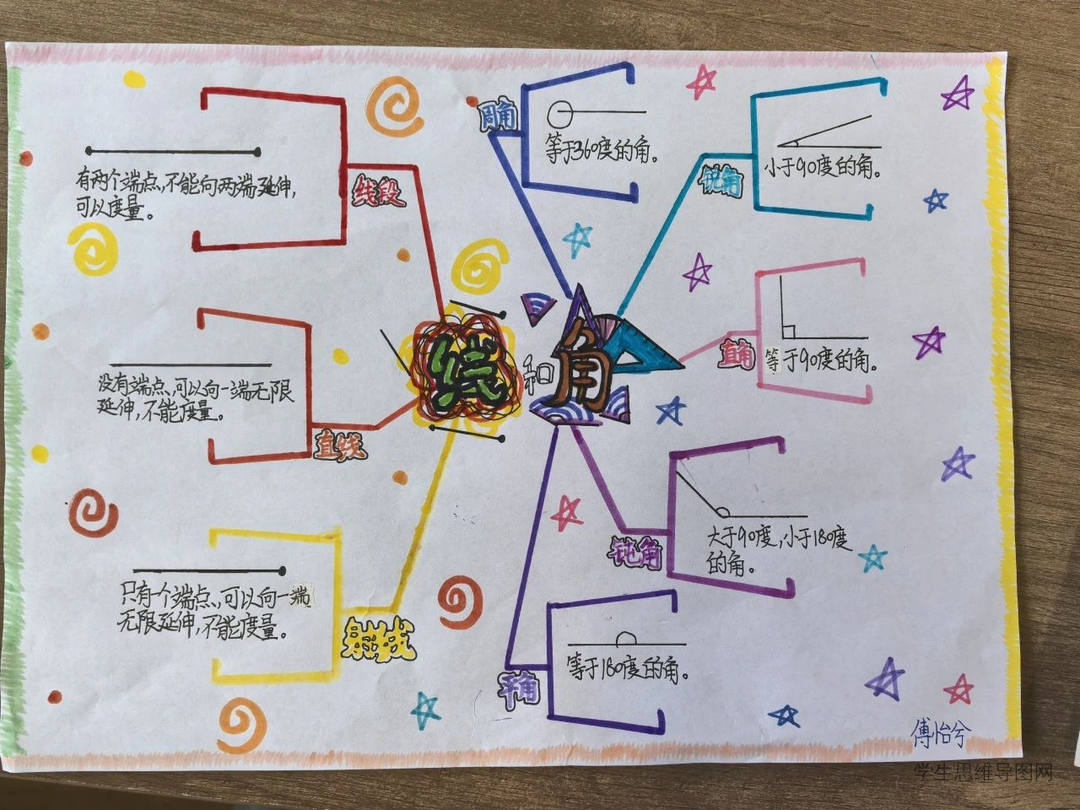 线段
有两个端点,不能向两端延伸,
可以度量。
直线
没有端点、可以向一端无限
延伸,不能度量。
射线
只有一个端点、,可以向一端
无限延伸,不能度量。
线和角
周角
等于360度的角。
锐角
小于90度的角。
直角
等于90度的角。
钝角
大于90度,小于180度
的角。
平角
等于180度的角。
傅怡兮
学生思维导图网